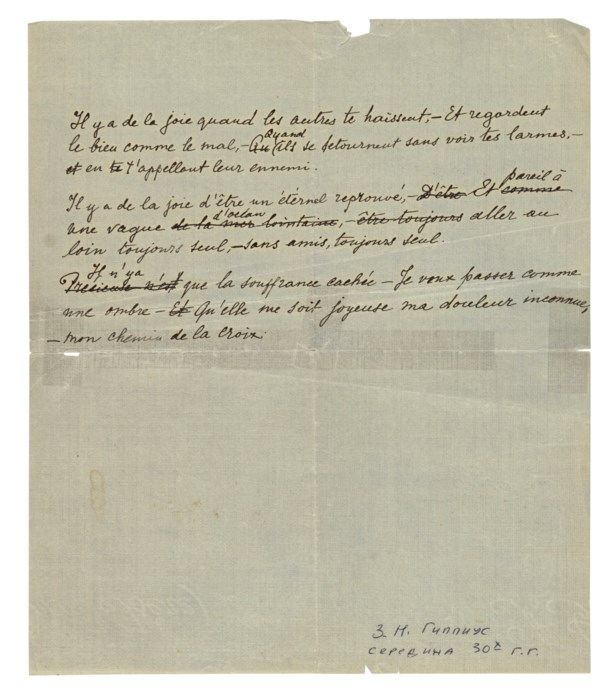 Il y a de la joie quand les autres te haissent, – Et regardent
le bien comme le mal, – Quand ils se detournent sans voir tes larmes, –
et en te t'appellant leur ennemi.
Il y a de la joie d'être un étérnel reprouvé, – D'être Et comme pareil à
une vague de la mer lointaine, d'océan – être toujours aller au
loin toujours seul, – sans amis, toujours seul.
Precieuse n'est Il n'y a que la souffrance cachée – Je veux passer comme
une ombre – Et Qu'elle me soit joyeuse ma douleur inconnue,
– mon chemin de la croix.
З. Н. Гиппиус
середина 30х г.г.